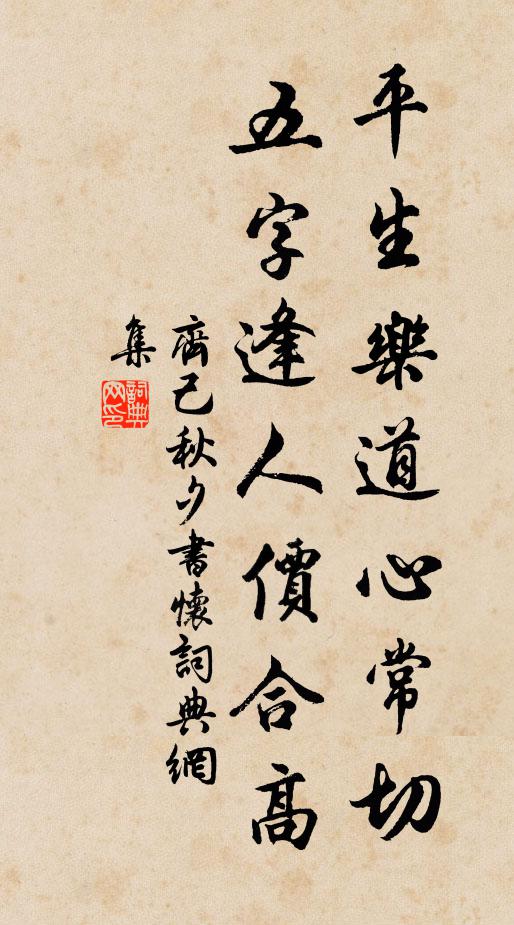 平生樂道心常切
五字逢人價合高
齊己秋夕書懷詞典網
集
詞典網印